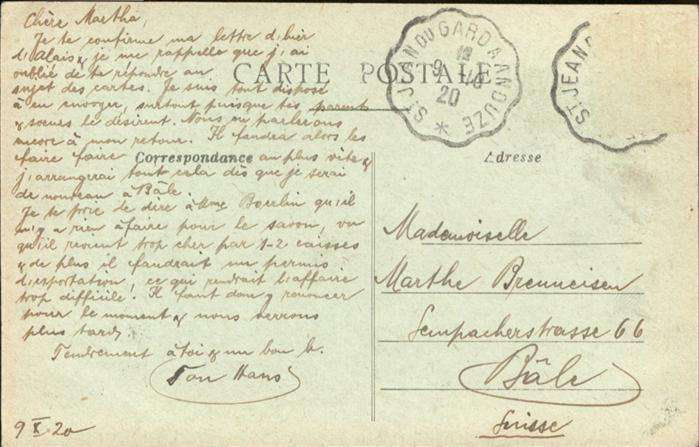 Chère Martha,
Je te confirme ma lettre d'hier
d'Alais & je me rappelle que j'ai
oublié de te répondre au
sujet des cartes. Je suis tout disposé
à en envoyer, surtout puisque tes parents
& sœurs le désirent. Nous en parlerons
encore à mon retour. Il faudra alors les
faire faire au plus vite &
j'arrangerai tout cela dès que je serai
de nouveau à Bâle.
Je te prie de dire à Mme Boerlin qu'il
n'y a rien à faire pour le savon, vu
qu'il revient trop cher par 1-2 caisses
& de plus il faudrait un permis
d'exportation, ce qui rendrait l'affaire
trop difficile. Il faut donc y renoncer
pour le moment & nous verrons
plus tard.
Tendrement à toi & un bon b.
Ton Hans
9 X 20
CARTE POSTALE
Correspondance
Adresse
ST JEAN DU GARD A ANDUZE
9 -10
20
ST JEAN D
Mademoiselle
Marthe Brenneisen
Sempacherstrasse 66
Bâle
Suisse